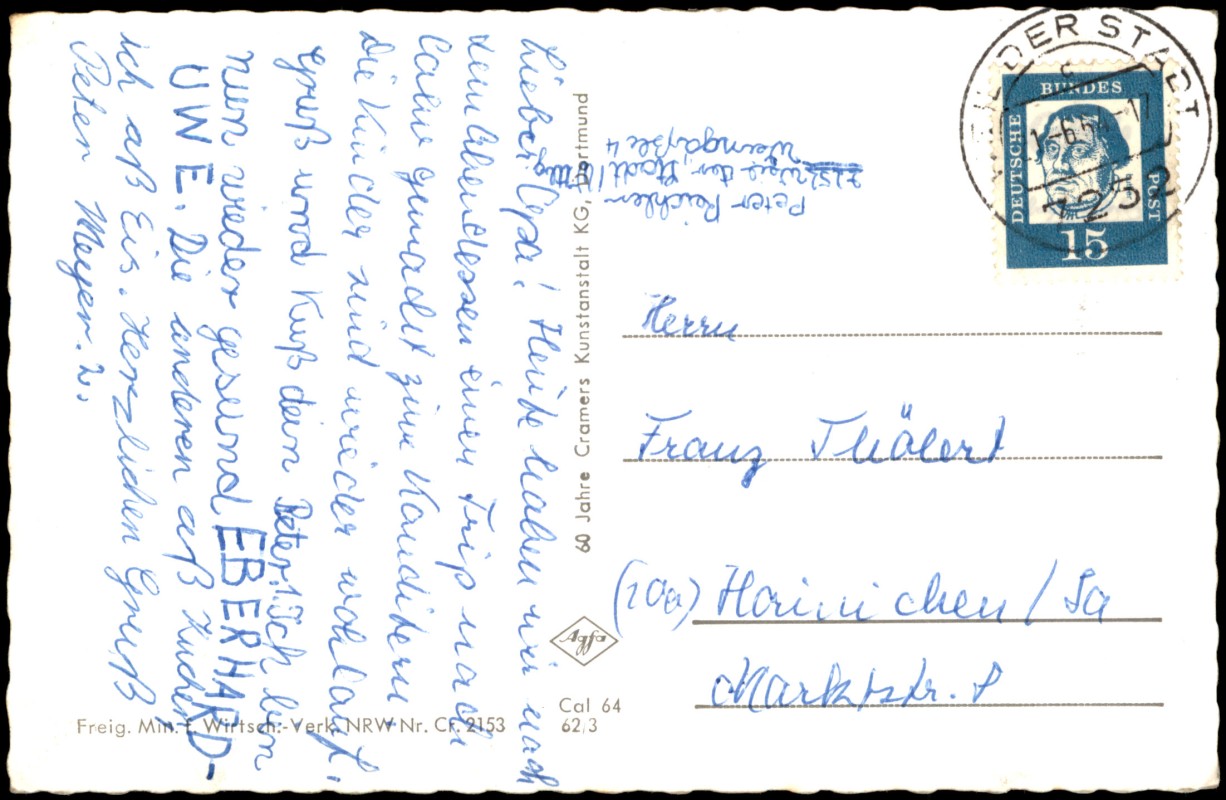 Lieber Opa! Heute haben wir nach
dem Abendessen einen Trip nach
Calw gemacht zur Konditorei
Die Kinder sind wieder wohlauf.
Gruß und Kuß dein Peter. 1. Ich bin
nun wieder gesund EBERHARD-
UWE. Die anderen aß Kuchen
ich aß Eis. Herzlichen Gruß
Peter Meyer. 2.
60 Jahre Cramers Kunstanstalt KG, Dortmund
Agfa
Cal 64
62/3
Freig. Min. f. Wirtsch.-Verk. NRW Nr. CF. 2153
Peter Reichler
7252 Weil der Stadt
4
DER STADT
7252
DEUTSCHE
BUNDES
POST
15
Herrn
Franz Thölert
(10a) Hainichen / Sa
Marktstr. 8